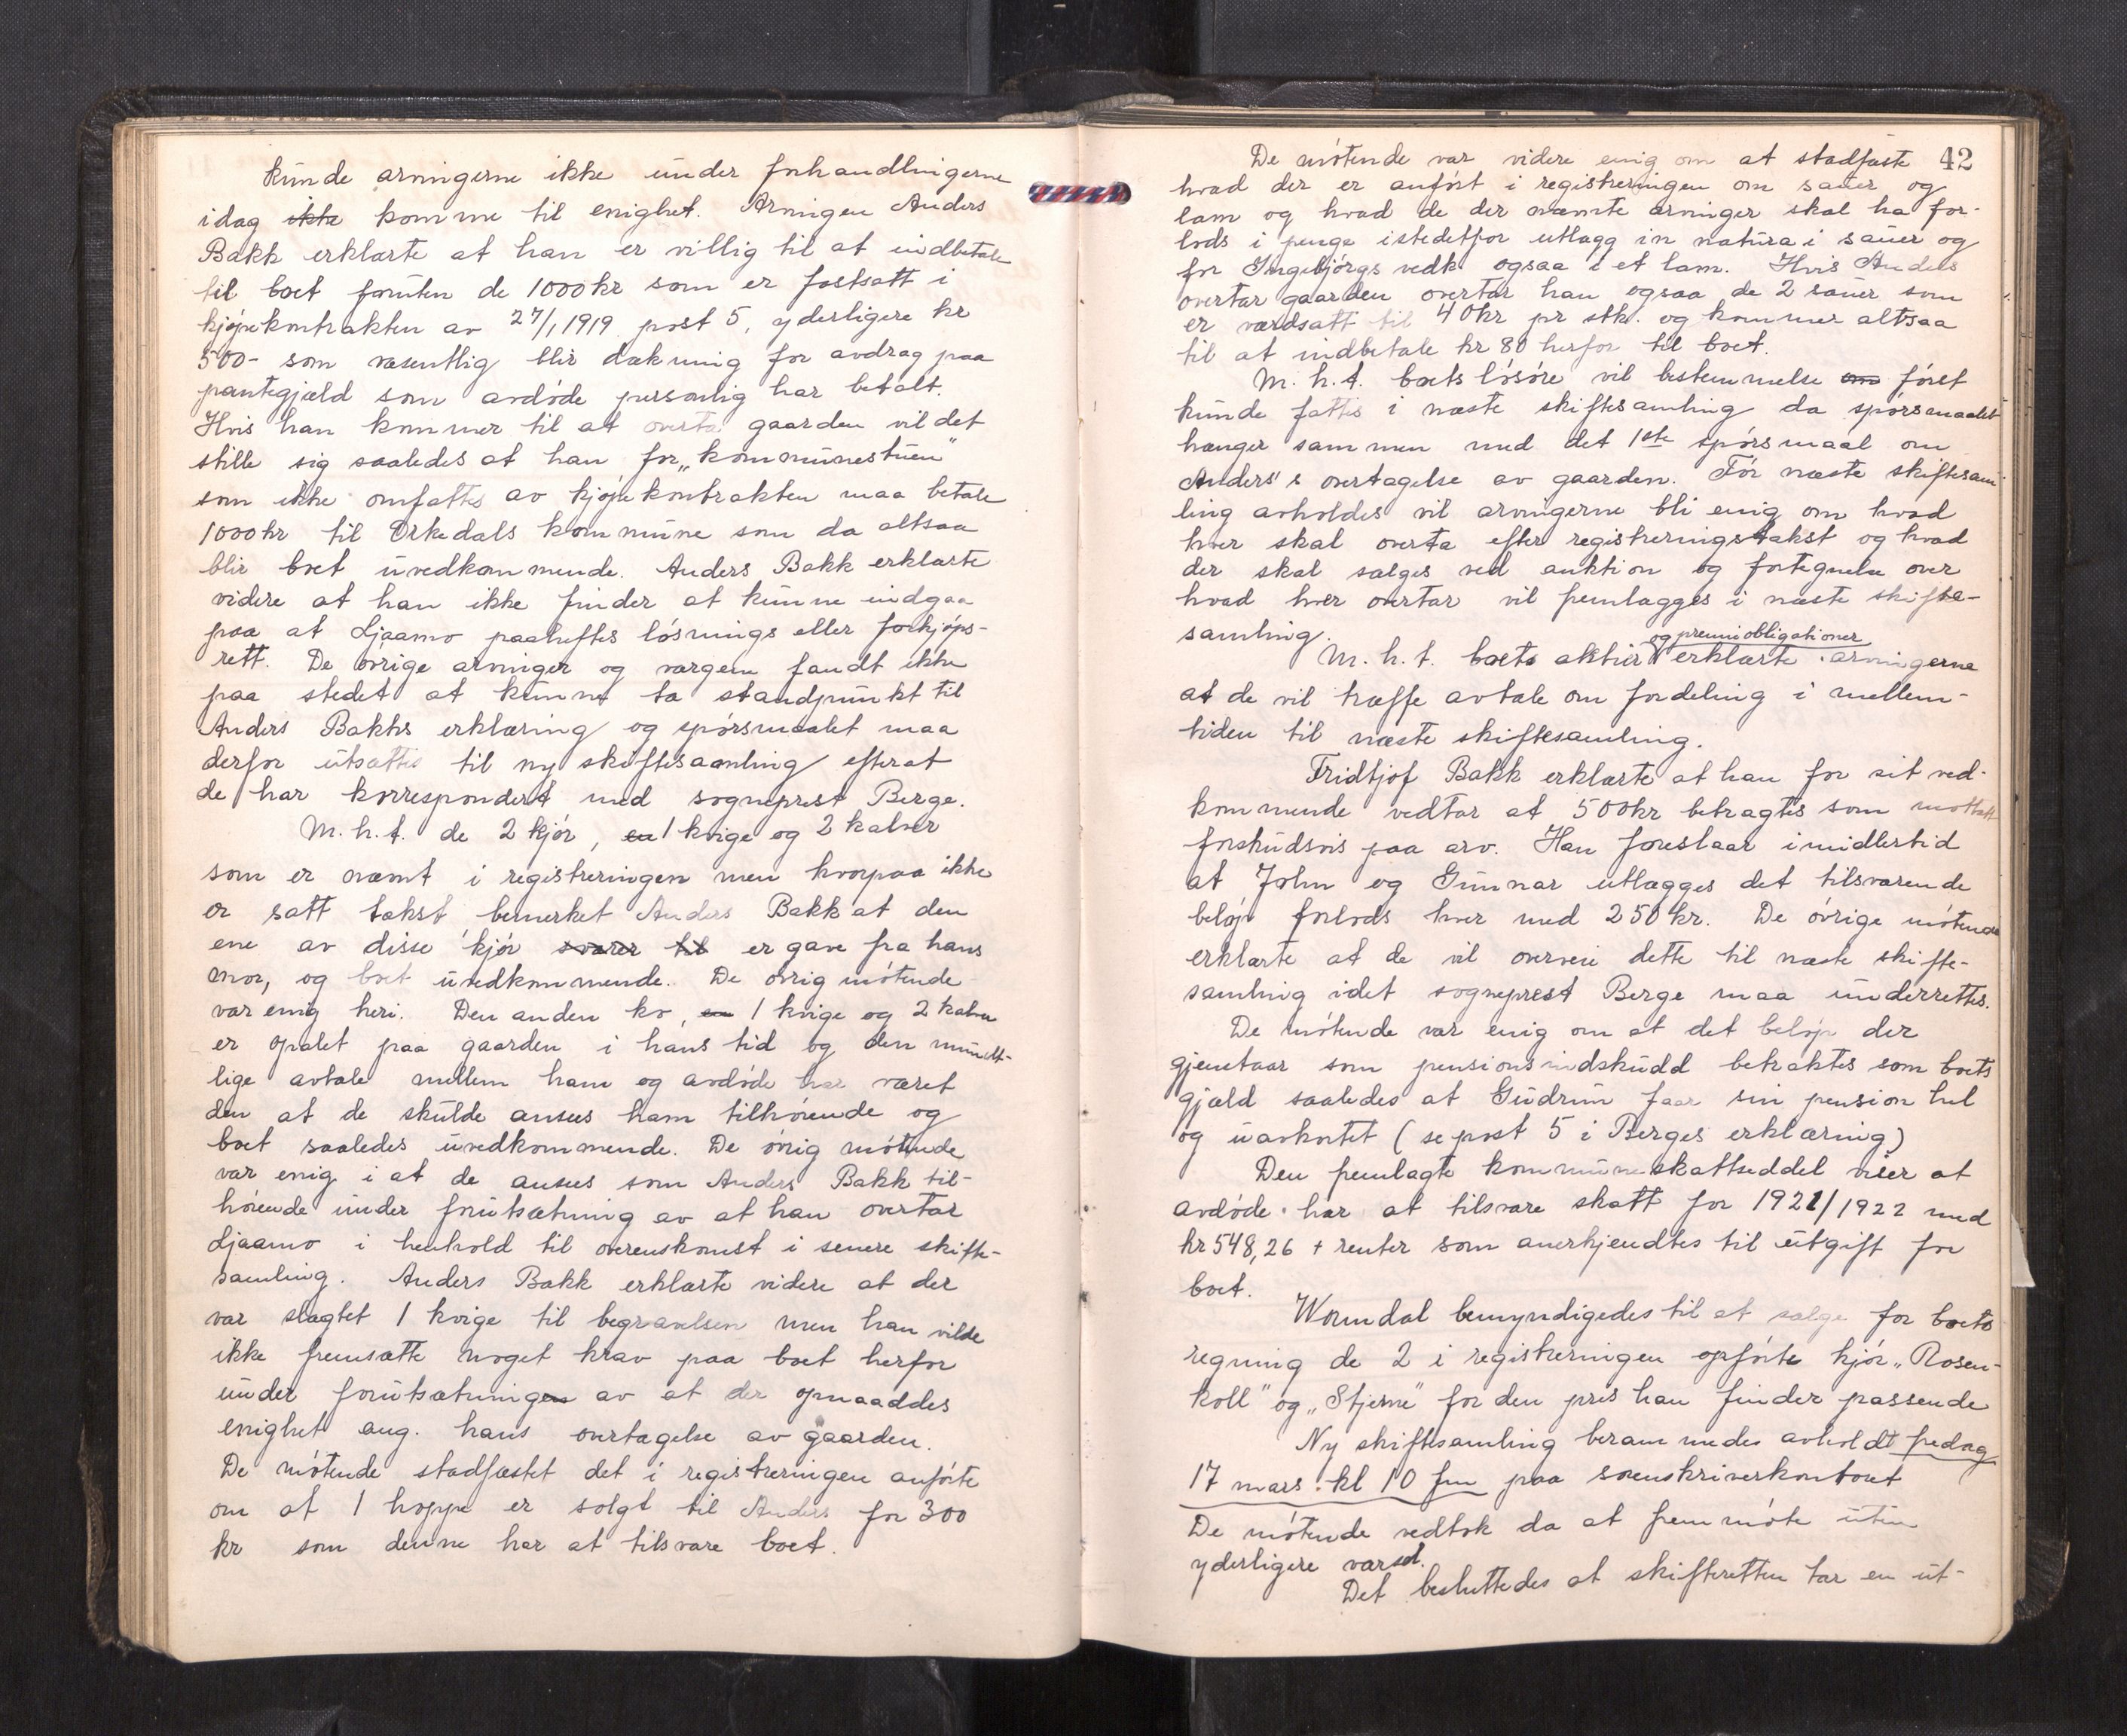 kunde arvingerne ikke under forhandlingerne
idag ikke komme til enighet. Arvingen Anders
Bakk erklærte at han er villig til at indbetale
til boet foruten de 1000 kr som er fastsatt i
kjøpekontrakten av 27/1 1919 post 5, yderligere kr
500- som væsentlig blir dækning for avdrag paa
pantegjæld som avdøde personlig har betalt.
Hvis han kommer til at overta gaarden vil det
stille sig saaledes at han for „kommunestuen"
som ikke omfattes av kjøpekontrakten maa betale
1000 kr til Orkedals kommune som da altsaa
blir boet uvedkommende. Anders Bakk erklærte
videre at han ikke finder at kunne indgaa
paa at Ljaamo paaheftes løsnings eller forkjøps-
rett. De øvrige arvinger og værgen fandt ikke
paa stedet at kunne ta standpunkt til
Anders Bakks erklæring og spørsmaalet maa
derfor utsættes til ny skiftesamling efterat
de har korrespondert med sogneprest Berge.
M.h.t. de 2 kjør, en 1 kvige og 2 kalver
som er nævnt i registreringen men hvorpaa ikke
er satt takst bemerket Anders Bakk at den
ene av disse kjør svarer til er gave fra hans
mor, og boet uvedkommende. De øvrig møtende
var enig heri. Den anden ko, en 1 kvige og 2 kalver
er opalet paa gaarden i hans tid og den mundt-
lige avtale mellem ham og avdøde har været
den at de skulde ansees ham tilhørende og
boet saaledes uvedkommende. De øvrig møtende
var enig i at de ansees som Anders Bakk til-
hørende under forutsætning av at han overtar
Ljaamo i henhold til overenskomst i senere skifte-
samling. Anders Bakk erklærte videre at der
var slagtet 1 kvige til begravelsen men han vilde
ikke fremsætte noget krav paa boet herfor
under forutsætningen av at der opnaaddes
enighet ang. hans overtagelse av gaarden.
De møtende stadfæstet det i registreringen anførte
om at 1 hoppe er solgt til Anders for 300
kr som denne har at tilsvare boet.
42
De møtende var videre enig om at stadfæste
hvad der er anført i registreringen om sauer og
lam og hvad de der nævnte arvinger skal ha for-
lods i penge istedetfor utlægg in natura i sauer og
for Ingebjørgs vedk. ogsaa i et lam. Hvis Anders
overtar gaarden overtar han ogsaa de 2 sauer som
er værdsatt til 40 kr pr stk. og kommer altsaa
til at indbetale kr 80 herfor til boet.
M.h.t. boets løsøre vil bestemmelse om først
kunde fattes i næste skiftesamling da spørsmaalet
hænger sammen med det 1ste spørsmaal om
Anders's overtagelse av gaarden. Før næste skiftesam-
ling avholdes vil arvingerne bli enig om hvad
hver skal overta efter registreringstakst og hvad
der skal sælges ved auktion og fortegnelse over
hvad hver overtar vil fremlægges i næste skifte-
samling.
og premieobligationer
M.h.t. boets aktier erklærte arvingerne
at de vil træffe avtale om fordeling i mellem-
tiden til næste skiftesamling.
Fridtjof Bakk erklærte at han for sit ved-
kommende vedtar at 500 kr betragtes som mottatt
forskudsvis paa arv. Han foreslaar imidlertid
at John og Gunnar utlægges det tilsvarende
beløp forlods hver med 250 kr. De øvrige møtende
erklærte at de vil overveie dette til næste skifte-
samling idet sogneprest Berge maa underrettes.
De møtende var enig om at det beløp der
gjenstaar som pensionsindskudd betraktes som boets
gjæld saaledes at Gudrun faar sin pension hel
og uavkortet (se post 5 i Berges erklæring)
Den fremlagte kommuneskattseddel viser at
avdøde har at tilsvare skatt for 1921/1922 med
kr 548,26 + renter som anerkjendtes til utgift for
boet.
Wormdal bemyndigedes til at sælge for boets
regning de 2 i registreringen opførte kjør „Rosen-
koll" og „Stjerne" for den pris han finder passende
Ny skiftesamling berammedes avholdt fredag
17 mars kl 10 fm paa sorenskriverkontoret
De møtende vedtok da at fremmøte uten
yderligere varsel.
Det besluttedes at skifteretten tar en ut-